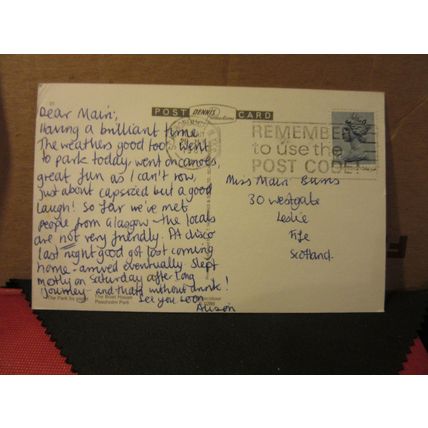 POST DENNIS CARD
Dear Mairi,
Having a brilliant time
The weathers good too! Went
to park today, went on canoes,
great fun as I can't row,
just about capsized but a good
laugh! So far we've met
people from Glasgow - the locals
are not very friendly. PA disco
last night good got lost coming
home - arrived eventually. Slept
mostly on Saturday after long
journey - and thats without drink!
See you soon
Alison
REMEMBER
to use the
POST CODE
Miss Mairi Burns
30 Westgate
Leslie
Fife
Scotland.
The Park by
The Boat House
Peasholm Park